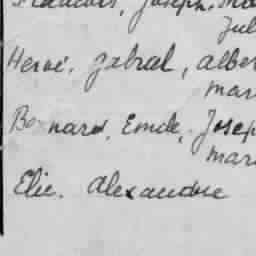 François, Joseph, Ma
Jul
Hervé, Gabriel, Alber
Mar
Bernard, Emile, Josep
Mari
Elie, Alexandre